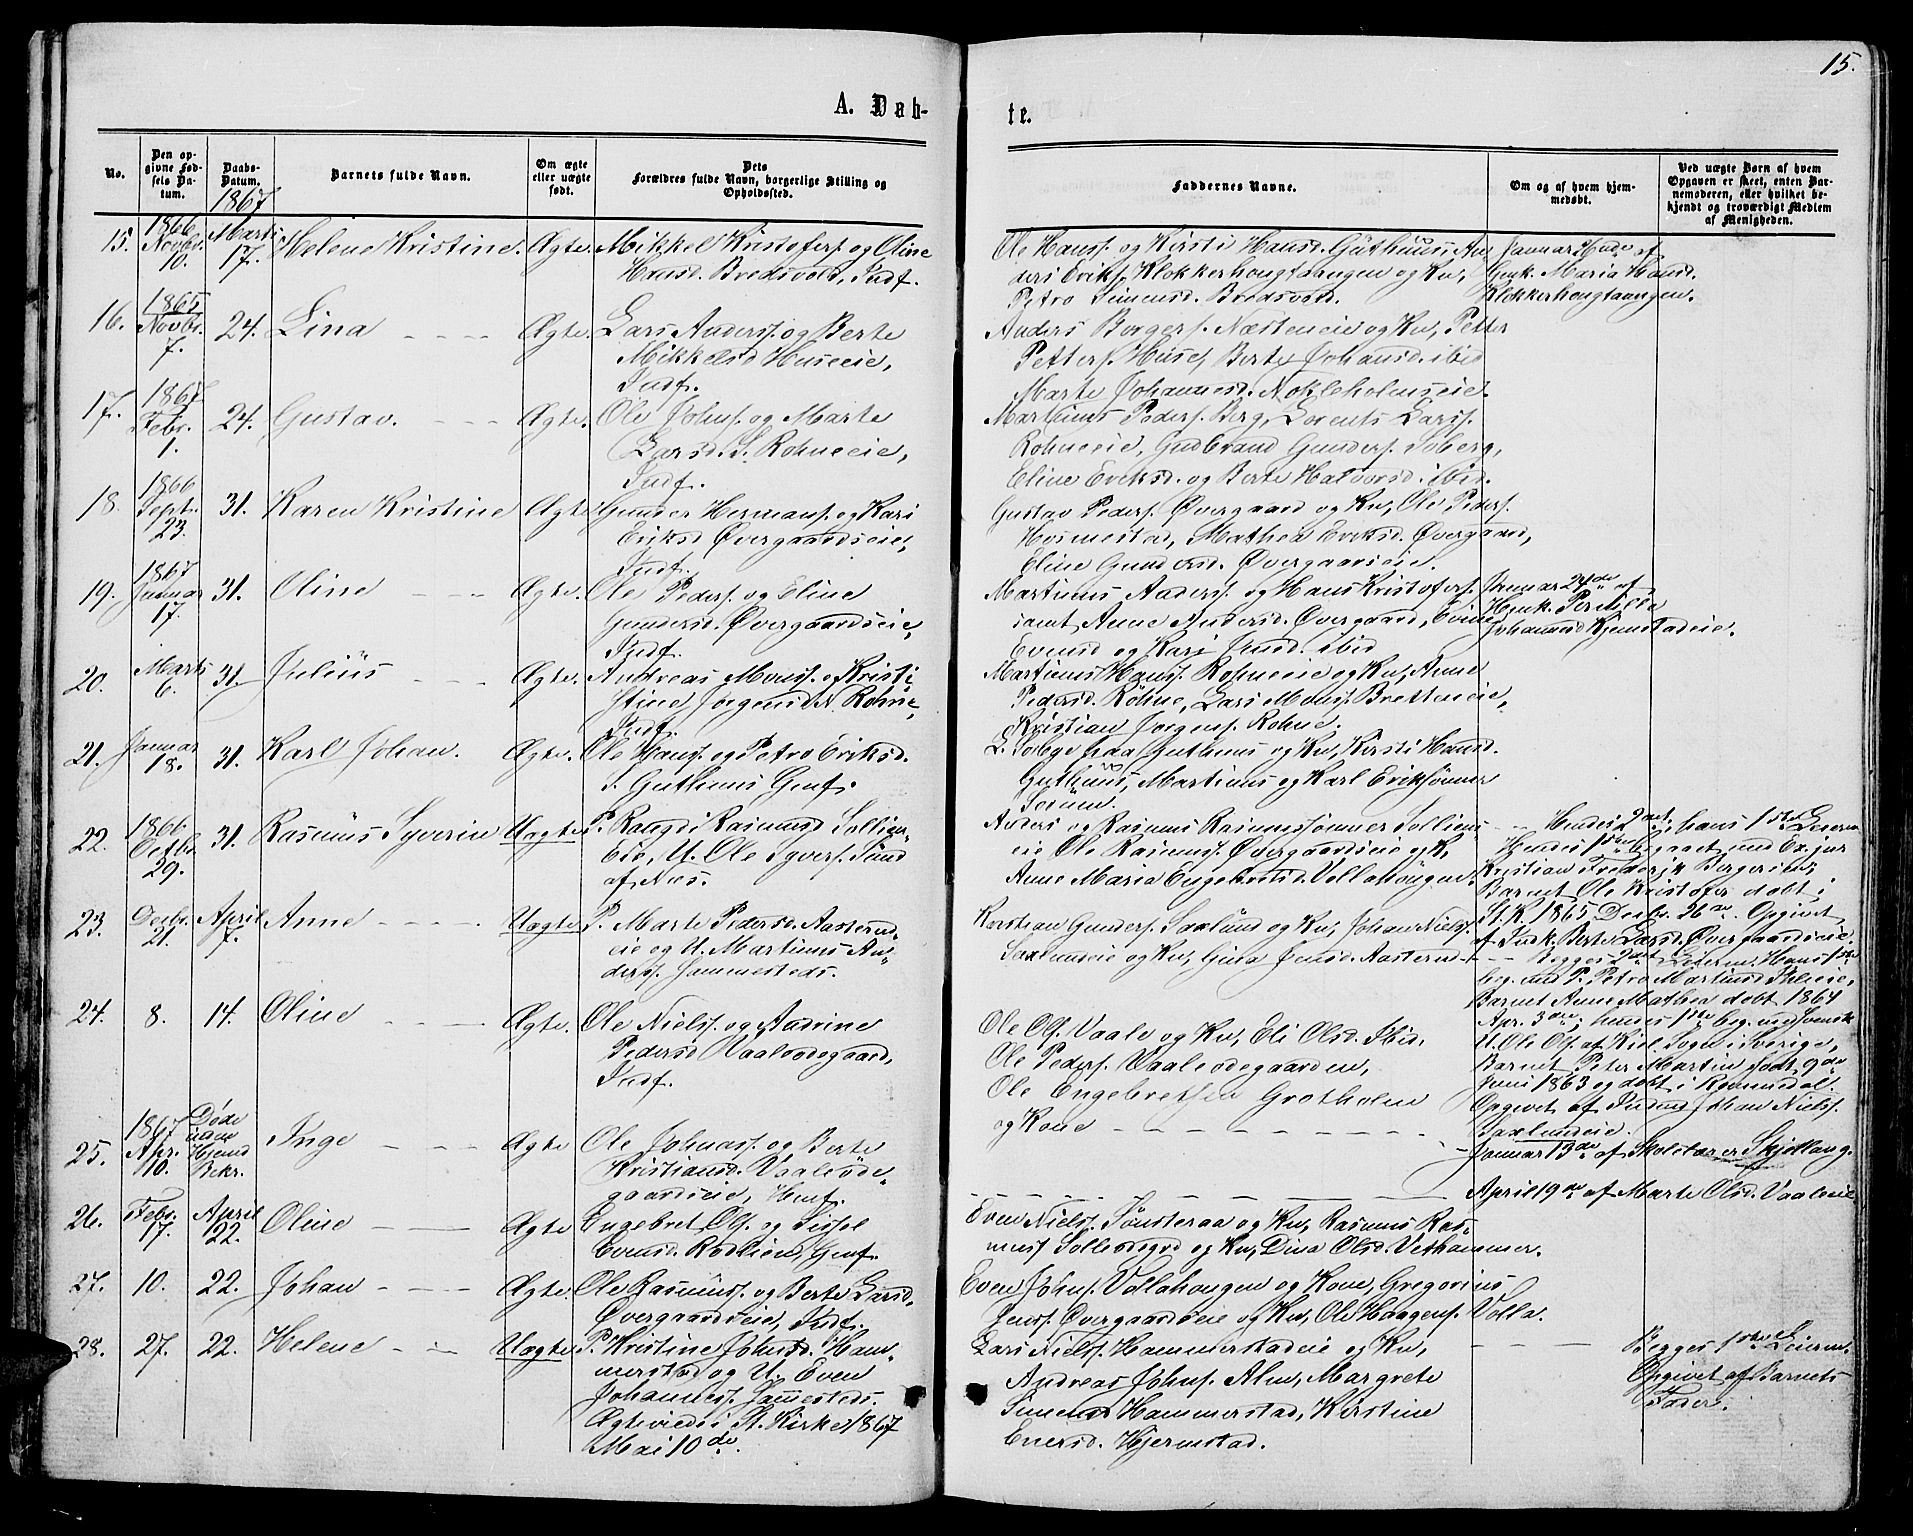 15.
A. Døb-
te.
No.
Den op-
givne Fød-
sels Da-
tum.
Daabs-
Datum.
1867
Barnets fulde Navn.
Om ægte
eller uægte
født.
Dets
Forældres fulde Navn, borgerlige Stilling og
Opholdssted.
Faddernes Navne.
Om og af hvem hjem-
medøbt.
Ved uægte Børn af hvem
Opgaven er skeet, enten Bar-
nemoderen, eller hvilket be-
kjendt og troværdigt Medlem
af Menigheden.
15.
1866
Novbr.
10.
Marts
17.
Helene Kristine.
Ægte.
Mikkel Kristofers. og Oline
Hansd. Bredsvold, Indf.
Ole Hans. og Kirsti Hansd. Guthuus, An
ders Eriks. Klokkerhougtangen og Kn,
Petro Simensd. Bredsvold.
Januar af
Gmk. Maria Hansd.
Klokkerhougtangen.
16.
1865
Novbr.
7.
24.
Lina
Ægte.
Lars Anderss. og Berte
Mikkelsd Huseeie,
Indf.
Anders Borgers. Næsteneie og Kn, Petter
Petters. Huse, Berte Johansd. ibid
Marte Johannesd. Nokleholmseie.
17.
1867
Febr.
1.
24.
Gustav.
Ægte.
Ole Johns. og Marte
Larsd. S. Rohneeie,
Indf.
Marthinus Peders. Berg, Lorents Larss.
Rohneeie, Gudbrand Gunders. Soberg,
Eline Eriksd. og Berte Halvorsd. ibid.
18
1866
Septr.
23.
31.
Karen Kristine
Ægte
Gunder Hermans. og Kari
Eriksd Øvergaardseie,
Indf.
Gustav Peders. Øvergaard og Kn, Ole Peders.
Hosmestad, Mathea Eriksd. Øvergaard,
Eline Gundersd. Øvergaardseie.
19.
1867
Januar
17.
31.
Oline
Ægte.
Ole Peders. og Eline
Gundersd. Øvergaardseie,
Indf.
Martinus Anders. og Hans Kristofers.
samt Anne Andersd. Øvergaard, Eline
Evensd og Kari Jensd. ibid
Januar 24de af
Hmk. Pernille
Johannesd Hjemstadeie.
20.
Marts
6.
31.
Julius
Ægte.
Andreas Monss. og Kristi
Stine Jorgensd N. Rohne,
Indf.
Martinus Hanss. Rohneeie og Kn, Anne
Pedersd. Rohne, Lars Mons. Bretteneie,
Kristian Jorgens. Rohne.
21.
Januar
18.
31.
Karl Johan.
Ægte.
Ole Hans. og Petro Eriksd.
S. Guthuus Gmf.
L. Solbye Guthuus og Kn, Kirsti Hansd.
Guthuus, Martinus og Karl Eriksønner
Sorum.
22.
1866.
Octbr.
29.
31.
Rasmus Syverin
Uægte.
P. Rangdi Rasmusd Sollien-
Eie, U. Ole Syvers. Sund
af Nes.
Anders og Rasmus Rasmussønner Solliens
eie Ole Rasmus. Øvergaardseie og K,
Anne Maria Engebretsd. Vollahougen.
Hendes 2det, hans 1ste Leierm
Hendes 1ste begaaet med Ex. jur
Kristian Frederik Bergersens,
Barnet Ole Kristofer døbt i
St. K. 1865 Decbr. 26de. Opgivet
af Indk. Berte Larsd. Øvergaardseie.
23.
Decbr.
21.
April
7.
Anne
Uægte
P. Marte Pedersd. Aasterud-
eie og U. Martinus An-
ders. Jammesteds.
Kristian Gunders. Saxlund og Kn, Johan Niels.
Saxlundeie og Kn, Gina Jensd. Aasterud
Begges 2det Leierm. Hans 1ste
beg. med P. Petro Martinsd
Barnet Anne Mathea døbt 1864
Apr. 3die, hendes 1ste beg. med svensk
U. Ole Ols. af Kil Sogn i Sverige,
Barnet Peter Martin født 9de
Juni 1863 og døbt i Romsdal.
Opgivet af Indm Johan Niels.
Saxlundeie.
24.
8.
14.
Oline
Ægte.
Ole Nielss. og Andrine
Pedersd Vaaleodegaard,
Indf.
Ole Ols. Vaale og Kn, Eli Olsd. Ibid.
Ole Peders. Vaaleodegaarden,
Ole Engebretsen Grotholm
og Kone
Januar 13de af Skolelærer Skjellang.
25.
1867
Apr.
10.
Døde
uden
Hjemd
Bekr.
Inge
Ægte
Ole Johnss. og Berte
Kristiansd. Vaaleøde-
gaardseie, Hmf.
April 19de af Marte Olsd. Vaaleeie
26.
Febr.
17.
April
22.
Oline
Ægte
Engebret Ols. og Sissel
Evensd. Rodlien, Gmf.
Even Niels. Sønsteraa og Kn, Rasmus Ras-
muss Sollesdgrd og Kn, Dina Olsd. Vethammer.
27.
10.
22.
Johan
Ægte.
Ole Rasmuss. og Berte Larsd,
Øvergaardseie, Indf.
Even Johns. Vollahougen og Kone, Gregorius
Jenss. Øvergaardseie og Kn, Ole Haagens. Volla.
28.
27.
22.
Helene
Uægte
P. Kristine Johnsd. Ham-
merstad og U. Even
Johanness. Sammesteds.
Ægteviede i St. Kirke 1867
Mai 10de.
Lars Niels. Hammerstadeie og Kn,
Andreas Johns. Alm, Margrete
Simens. Hammerstad, Kirstine
Enersd. Hjermstad.
Begges 1ste Leierm.
Opgivet af Barnets
Fader.